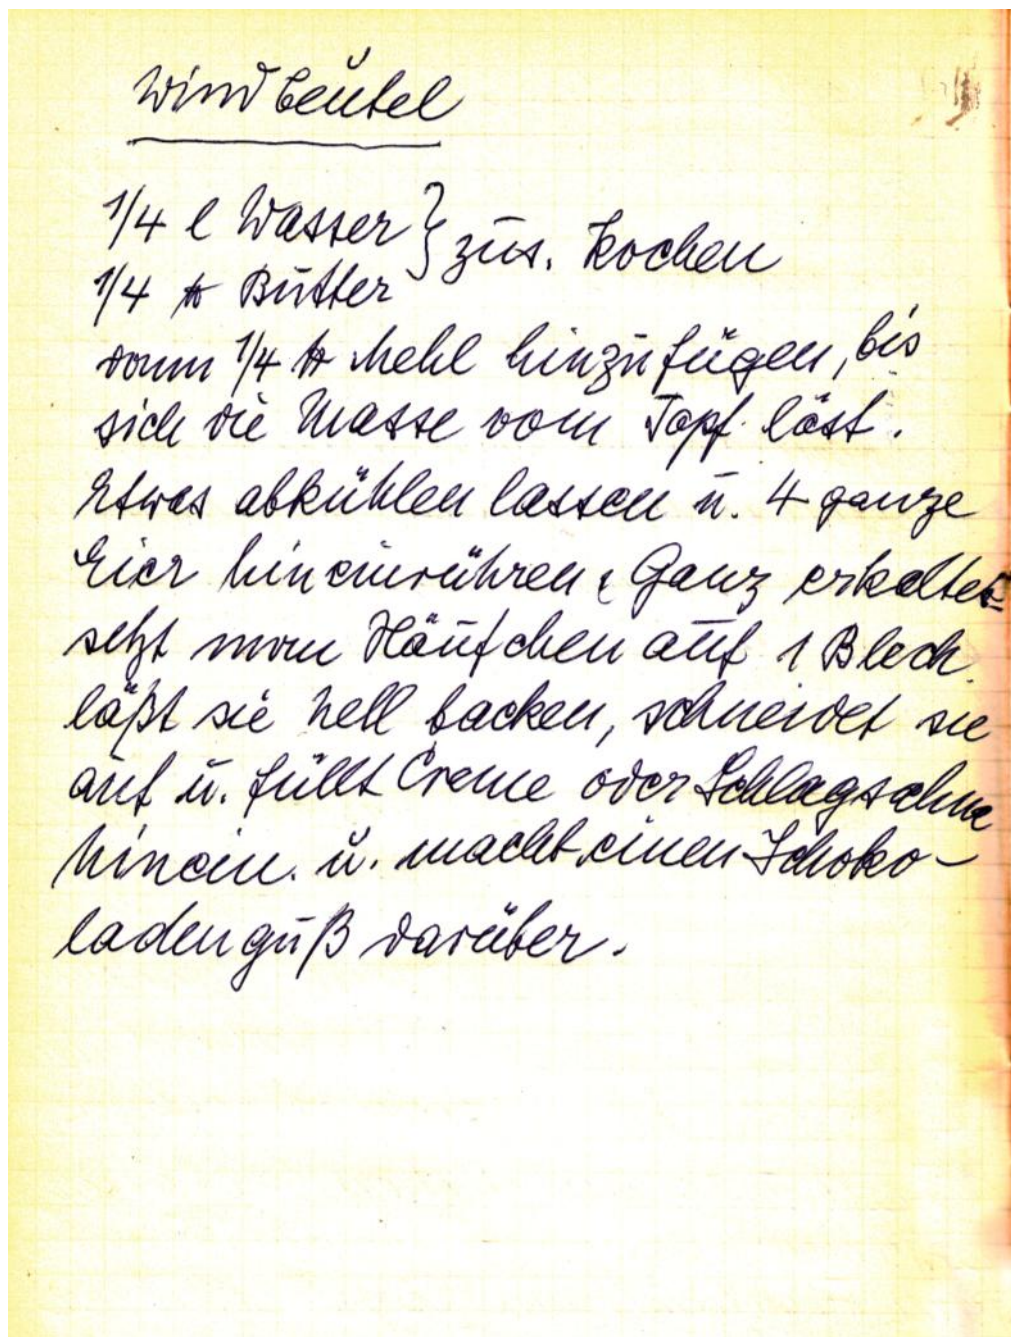 Windbeutel
1/4 l Wasser } zus. kochen
1/4 ℔ Butter
dann 1/4 ℔ Mehl hinzufügen, bis
sich die Masse vom Topf löst.
Etwas abkühlen lassen u. 4 ganze
Eier hineinrühren. Ganz erkaltet
setzt man Häufchen auf 1 Blech
läßt sie hell backen, schneidet sie
auf u. füllt Creme oder Schlagsahne
hinein. u. macht einen Schoko-
ladenguß darüber.